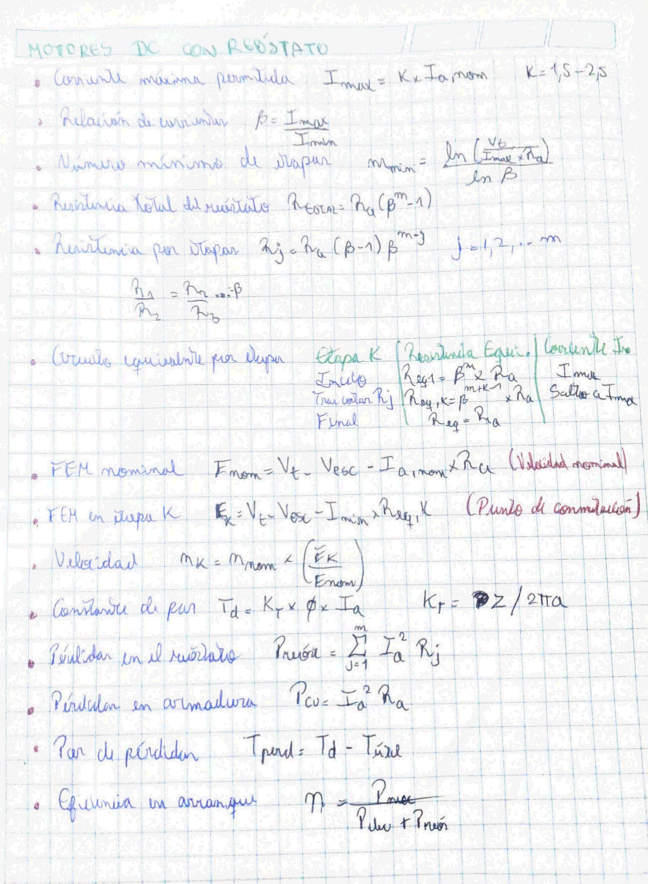 MOTORES DC CON REÓSTATO
• Corriente máxima permitida I max = K x Ia,nom K = 1,5 - 2,5
• Relación de corrientes β = Imax / Imin
• Número mínimo de etapas m min = ln (Vt / Imax x Ra) / ln β
• Resistencia total del reóstato R total = Ra (β^m - 1)
• Resistencia por etapas Rj = Ra (β-1) β^m-j j = 1,2,... m
R1 / R2 = R2 / R3 ... = β
• Circuito equivalente por etapa Etapa K | Resistencia Equi. | Corriente
Inicio | Req1 = β^m x Ra | Imax
Tras cortar Rj | Req,K = β^m+k-1 x Ra | Salto a Imax
Final | Req = Ra
• FEM nominal Enom = Vt - Vesc - Ia,nom x Ra (Velocidad nominal)
• FEM en etapa K Ek = Vt - Vesc - Imin x Req,K (Punto de conmutación)
• Velocidad nK = nnom x (EK / Enom)
• Constante de par Td = KT x ø x Ia KT = PZ / 2πa
• Pérdidas en el reóstato Preós = Σ j=1 m Ia² Rj
• Pérdidas en armadura Pcu = Ia² Ra
• Par de pérdidas Tperd = Td - Túxl
• Eficiencia en arranque η = Pmec / Pelec + Preós